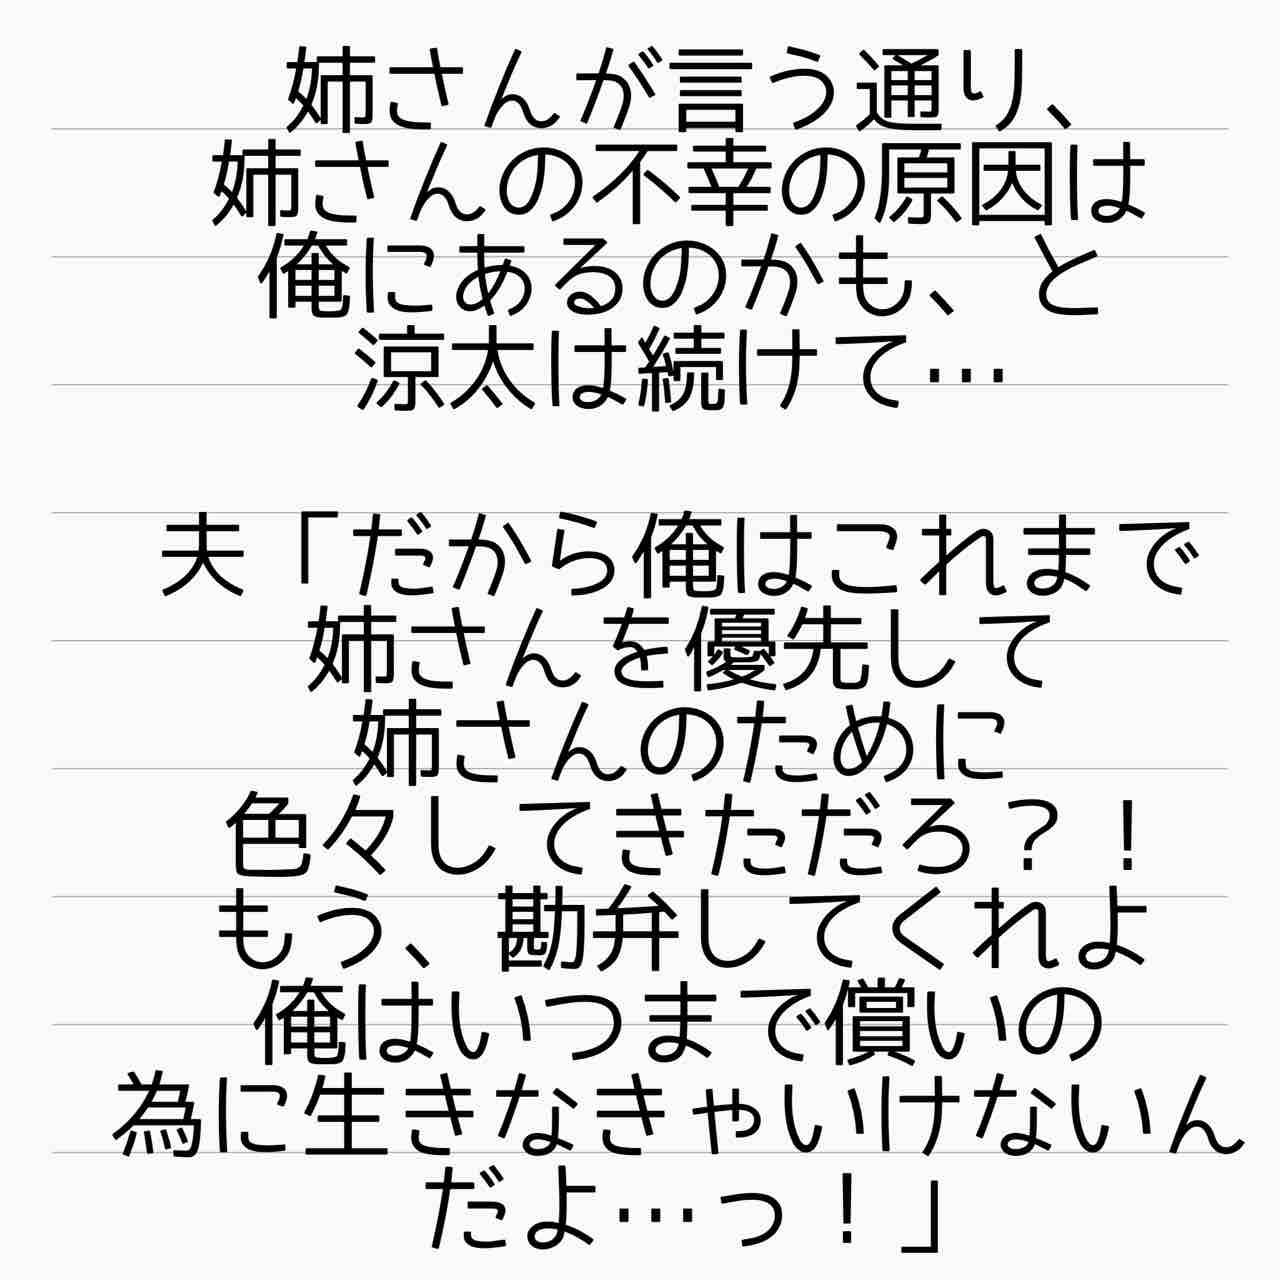 姉さんが言う通り、
姉さんの不幸の原因は
俺にあるのかも、と
涼太は続けて…
夫「だから俺はこれまで
姉さんを優先して
姉さんのために
色々してきただろ？！
もう、勘弁してくれよ
俺はいつまで償いの
為に生きなきゃいけないん
だよ…っ！」